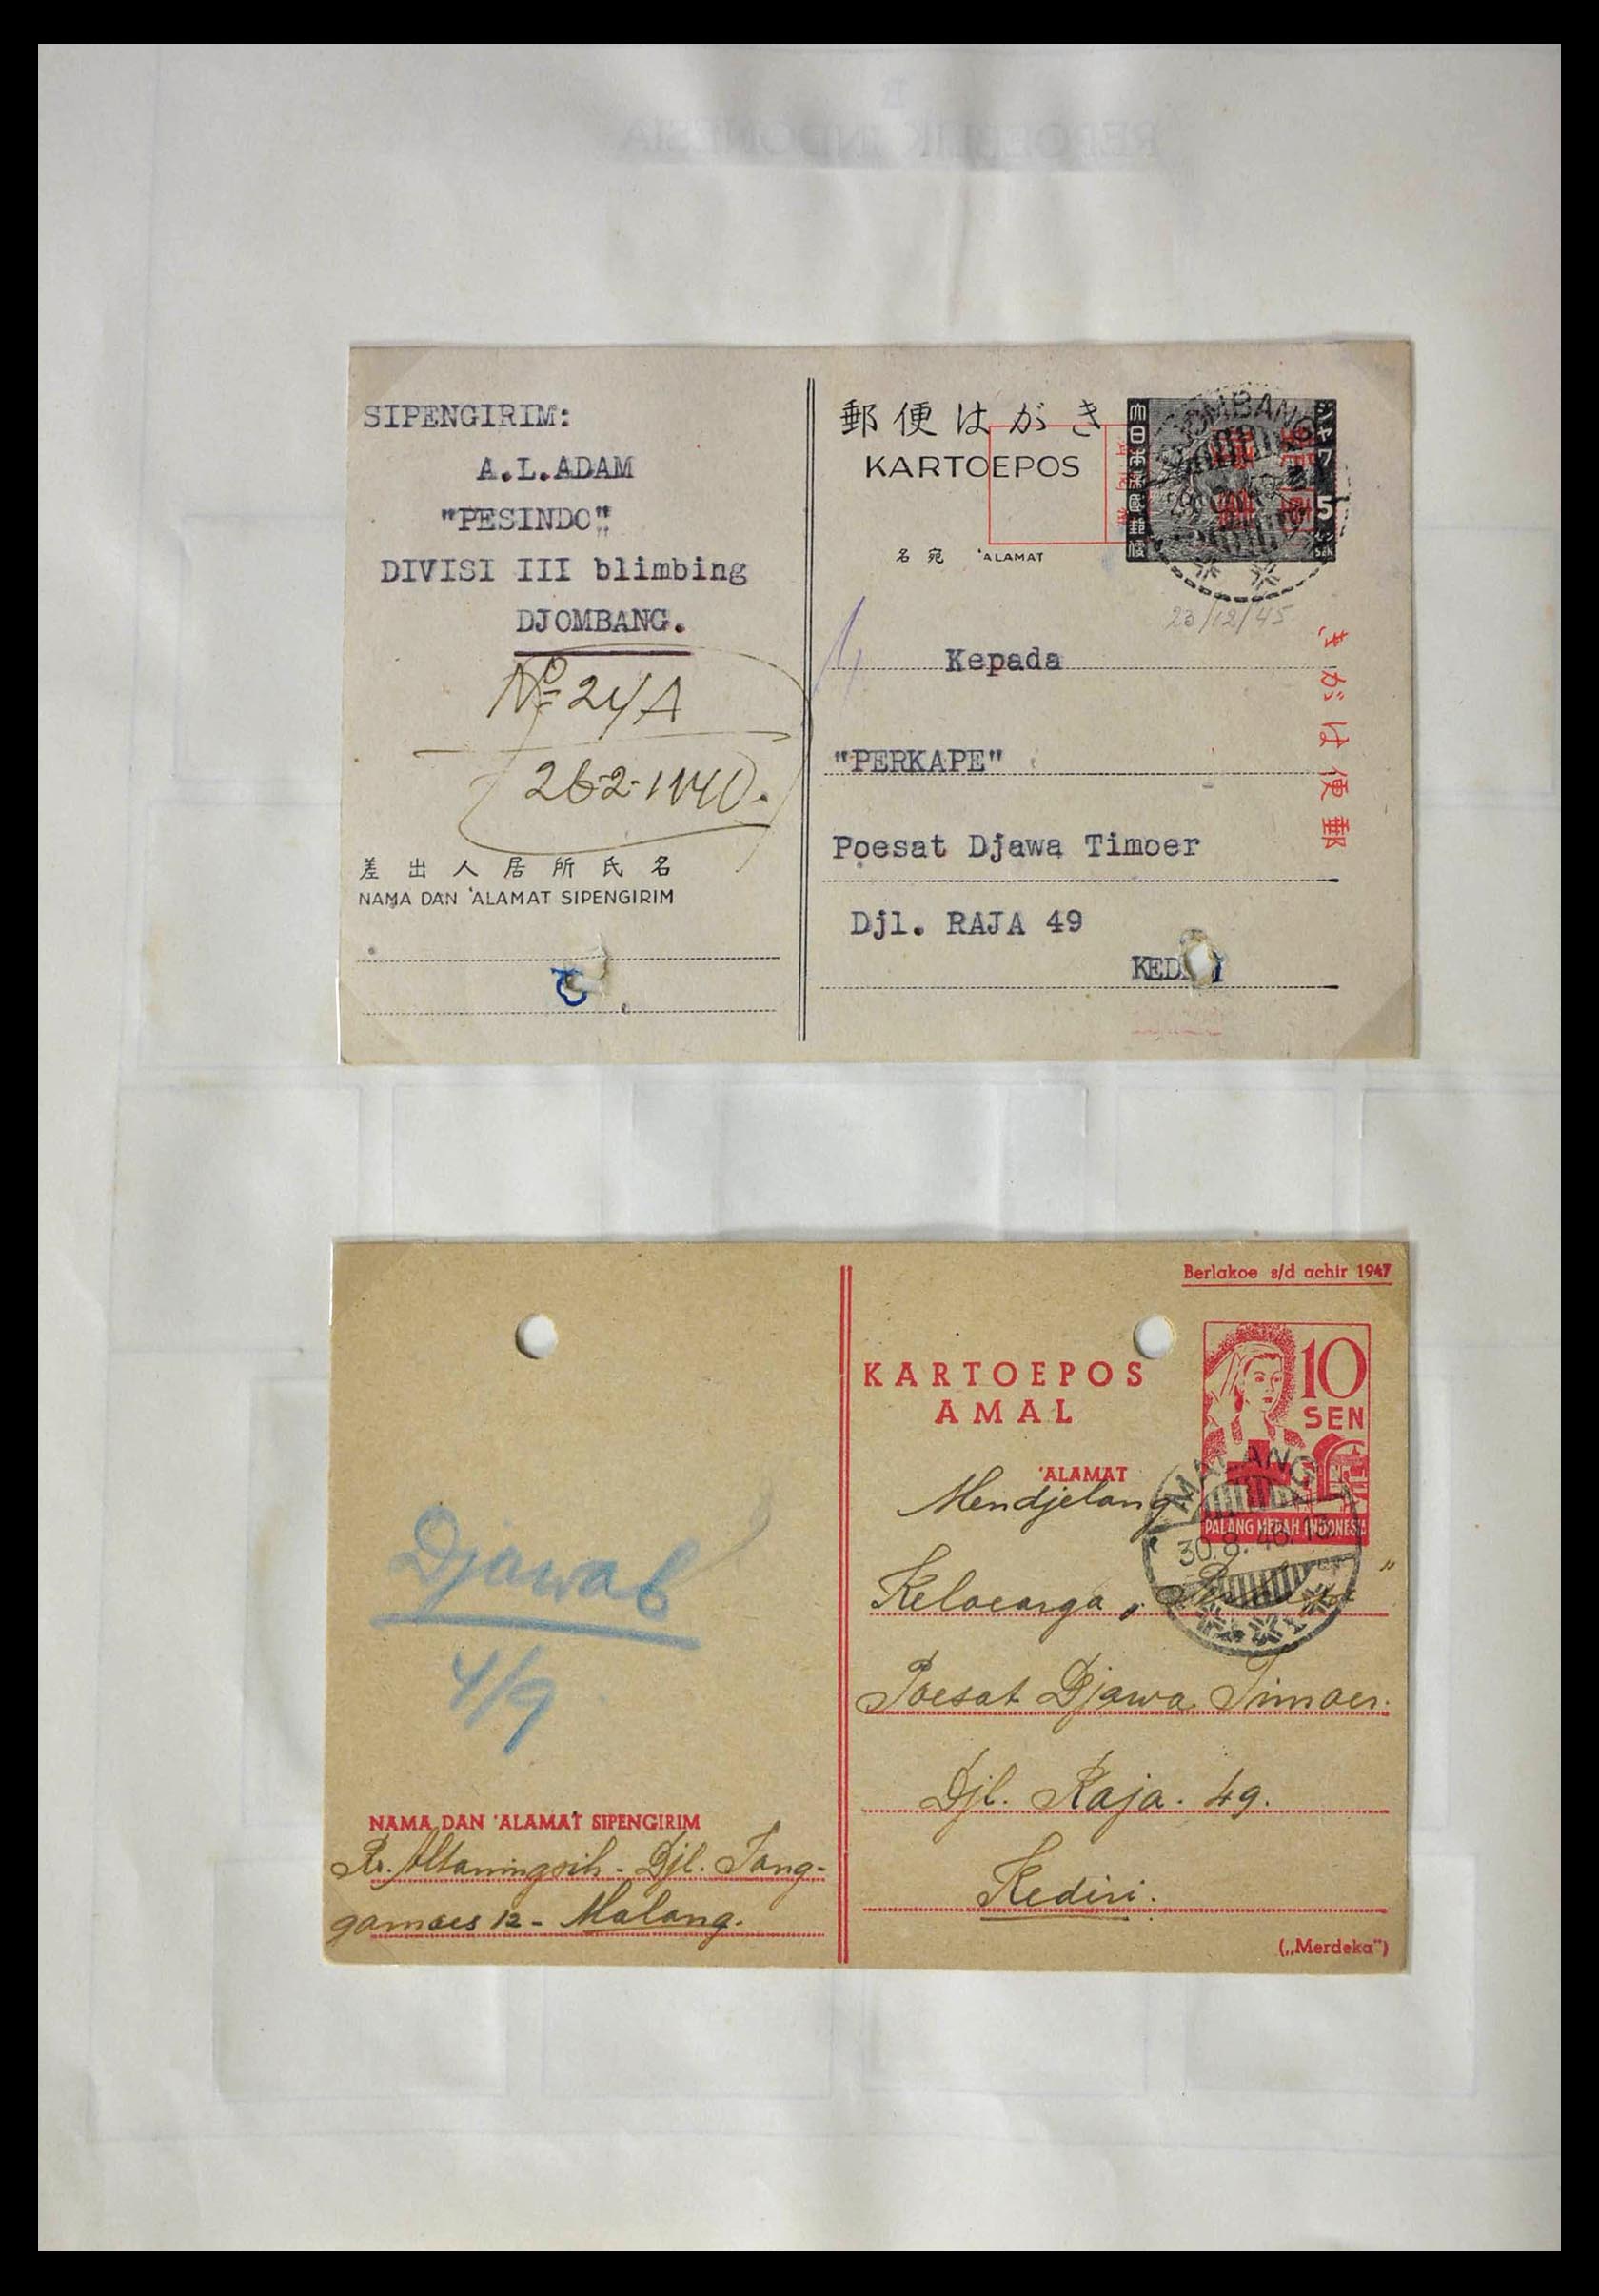 REPOEBLIK INDONESIA
SIPENGIRIM:
A.L.ADAM
"PESINDO"
DIVISI III blimbing
DJOMBANG.
No 24/A
差出人居所氏名
NAMA DAN 'ALAMAT SIPENGIRIM
郵便はがき
KARTOEPOS
名宛 'ALAMAT
大日本帝国郵便
ジャワ
5
セン
SEN
23/12/45
Kepada
"PERKAPE"
Poesat Djawa Timoer
Djl. RAJA 49
郵便はがき
Berlakoe s/d achir 1947
KARTOEPOS
AMAL
10
SEN
PALANG MERAH INDONESIA
MALANG
30.8.46.13
'ALAMAT
Mendjelang
Keloearga
Poesat Djawa Timoer.
Djl. Raja. 49.
Kediri.
("Merdeka")
Djawab
4/9
NAMA DAN 'ALAMAT SIPENGIRIM
Djl. Tang-
gamoes 12 - Malang.